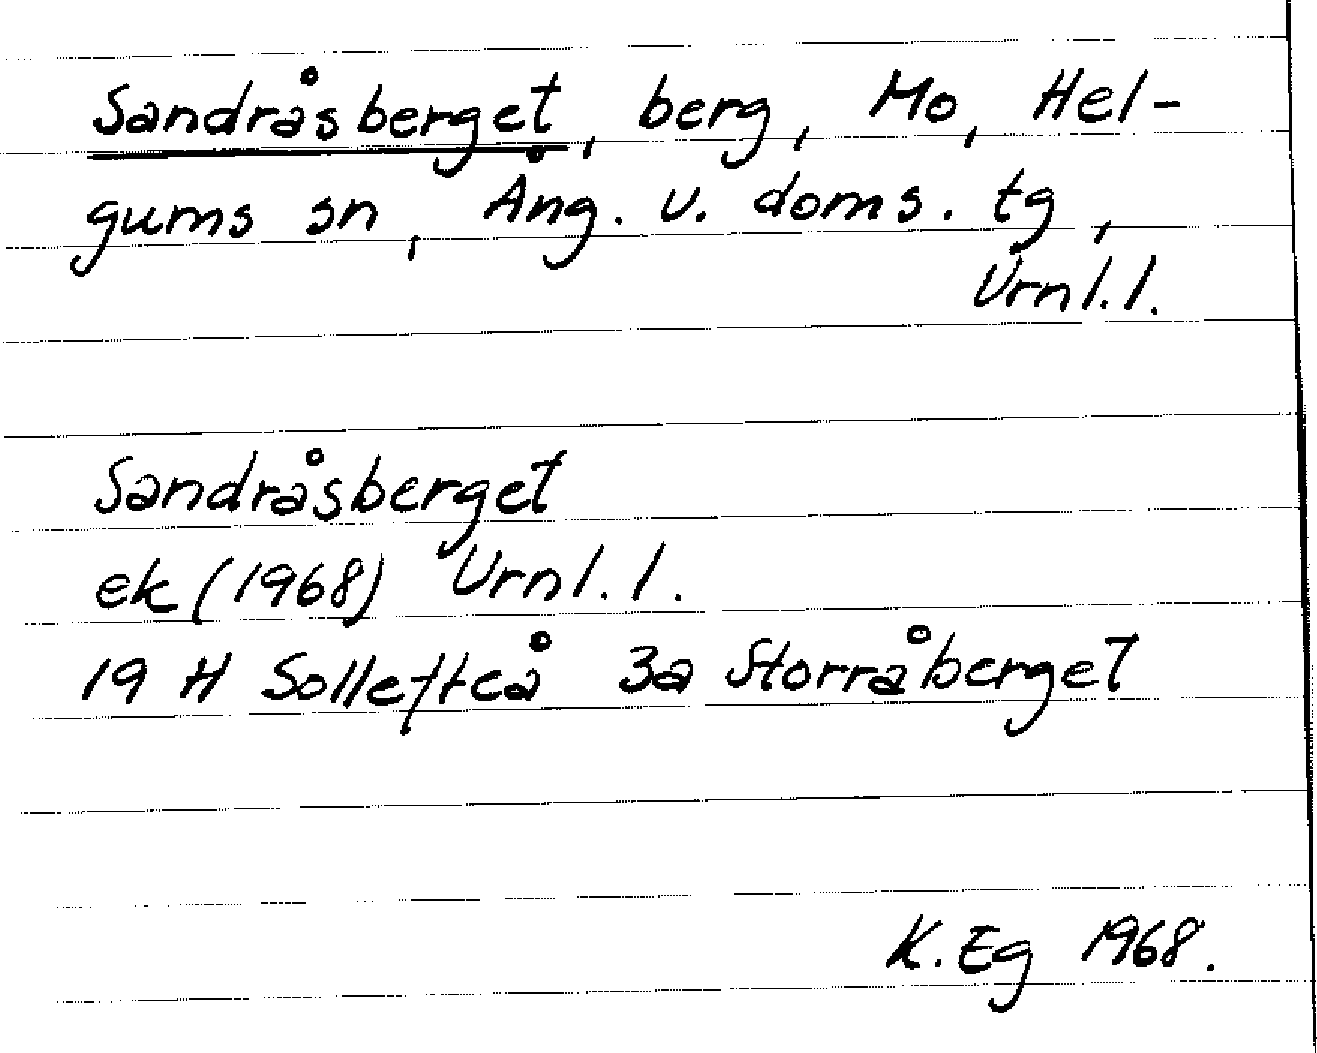 Sandråsberget, berg, Mo, Hel-
gums sn, Ång. v. doms. tg,
Vrnl.l.
Sandråsberget
ek (1968) Vrnl.l.
19 H Sollefteå 3a Storråberget
K. Eg 1968.